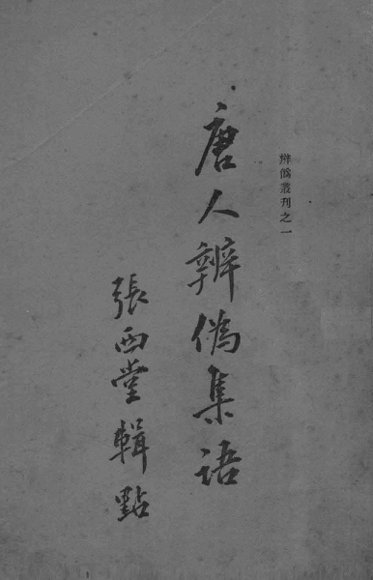 辨僞叢刊之一
唐人辨僞集語
張西堂輯點